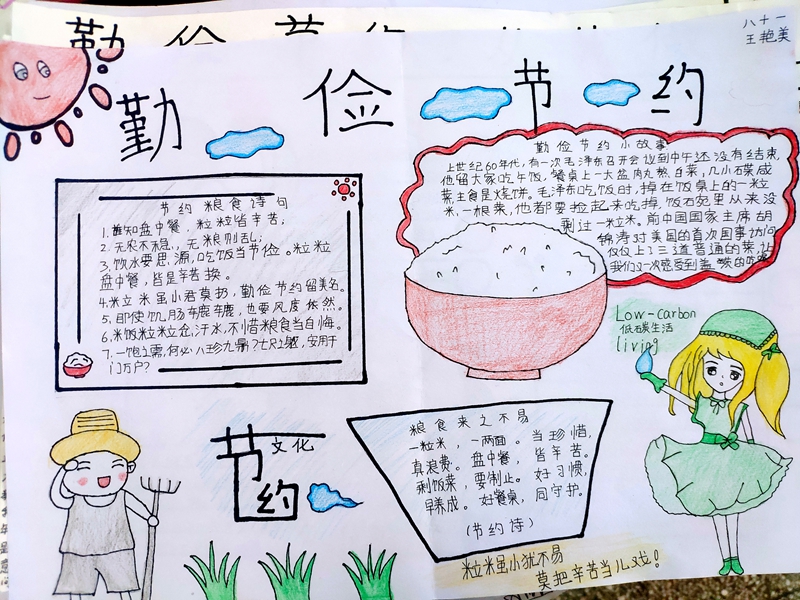 八十一
王艳美
勤俭节约
勤俭节约小故事
上世纪60年代,有一次毛泽东召开会议到中午还没有结束,
他留大家吃午饭,餐桌上一大盆肉丸熬白菜,几小碟咸
菜,主食是烧饼。毛泽东吃饭时,掉在饭桌上的一粒
米,一根菜,他都要捡起来吃掉,饭石宛里从来没
剩过一粒米。前中国国家主席胡
锦涛对美国的首次国事访问
仅仅上了三道普通的菜,让
我们又一次感受到
节约粮食诗句
1.谁知盘中餐,粒粒皆辛苦;
2.无农不稳,无粮则乱;
3.饮水要思源,吃饭当节俭。粒粒
盘中餐,皆是辛苦换。
4.米立米虽小君莫扔,勤俭节约留美名。
5.即使饥肠辘辘,也要风度依然。
6.米饭粒粒念汗水,不惜粮食当自悔。
7.一饱之需,何必八珍九鼎?七尺之躯,安用千
门万户?
Low-carbon
低碳生活
living
节约
文化
粮食来之不易
一粒米,一两面。当珍惜,
莫浪费。盘中餐,皆辛苦。
剩饭菜,要制止。好习惯,
早养成。好餐桌,同守护。
(节约诗)
粒米虽小犹不易
莫把辛苦当儿戏!